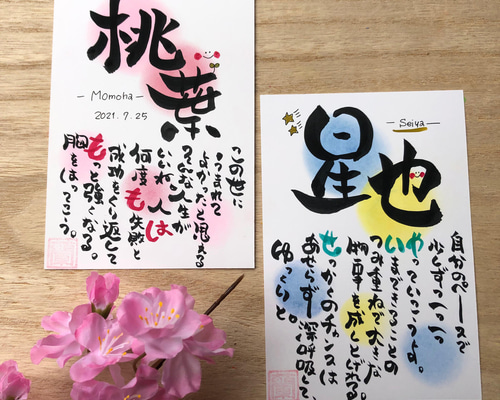 桃葉
- Momoha -
2021.7.25
この世に
うまれて
よかったと思える
そんな人生が
いいね。人は
何度も失敗と
成功をくり返して
もっと強くなる。
胸をはってこう。
星也
- Seiya -
自分のペースで
少しずつ一つ一つ
やっていこう
いまできることの
つみ重ねで大きな
物事を成しとげれる。
せっかくのチャンスは
あせらず、深呼吸して、
ゆっくりと。